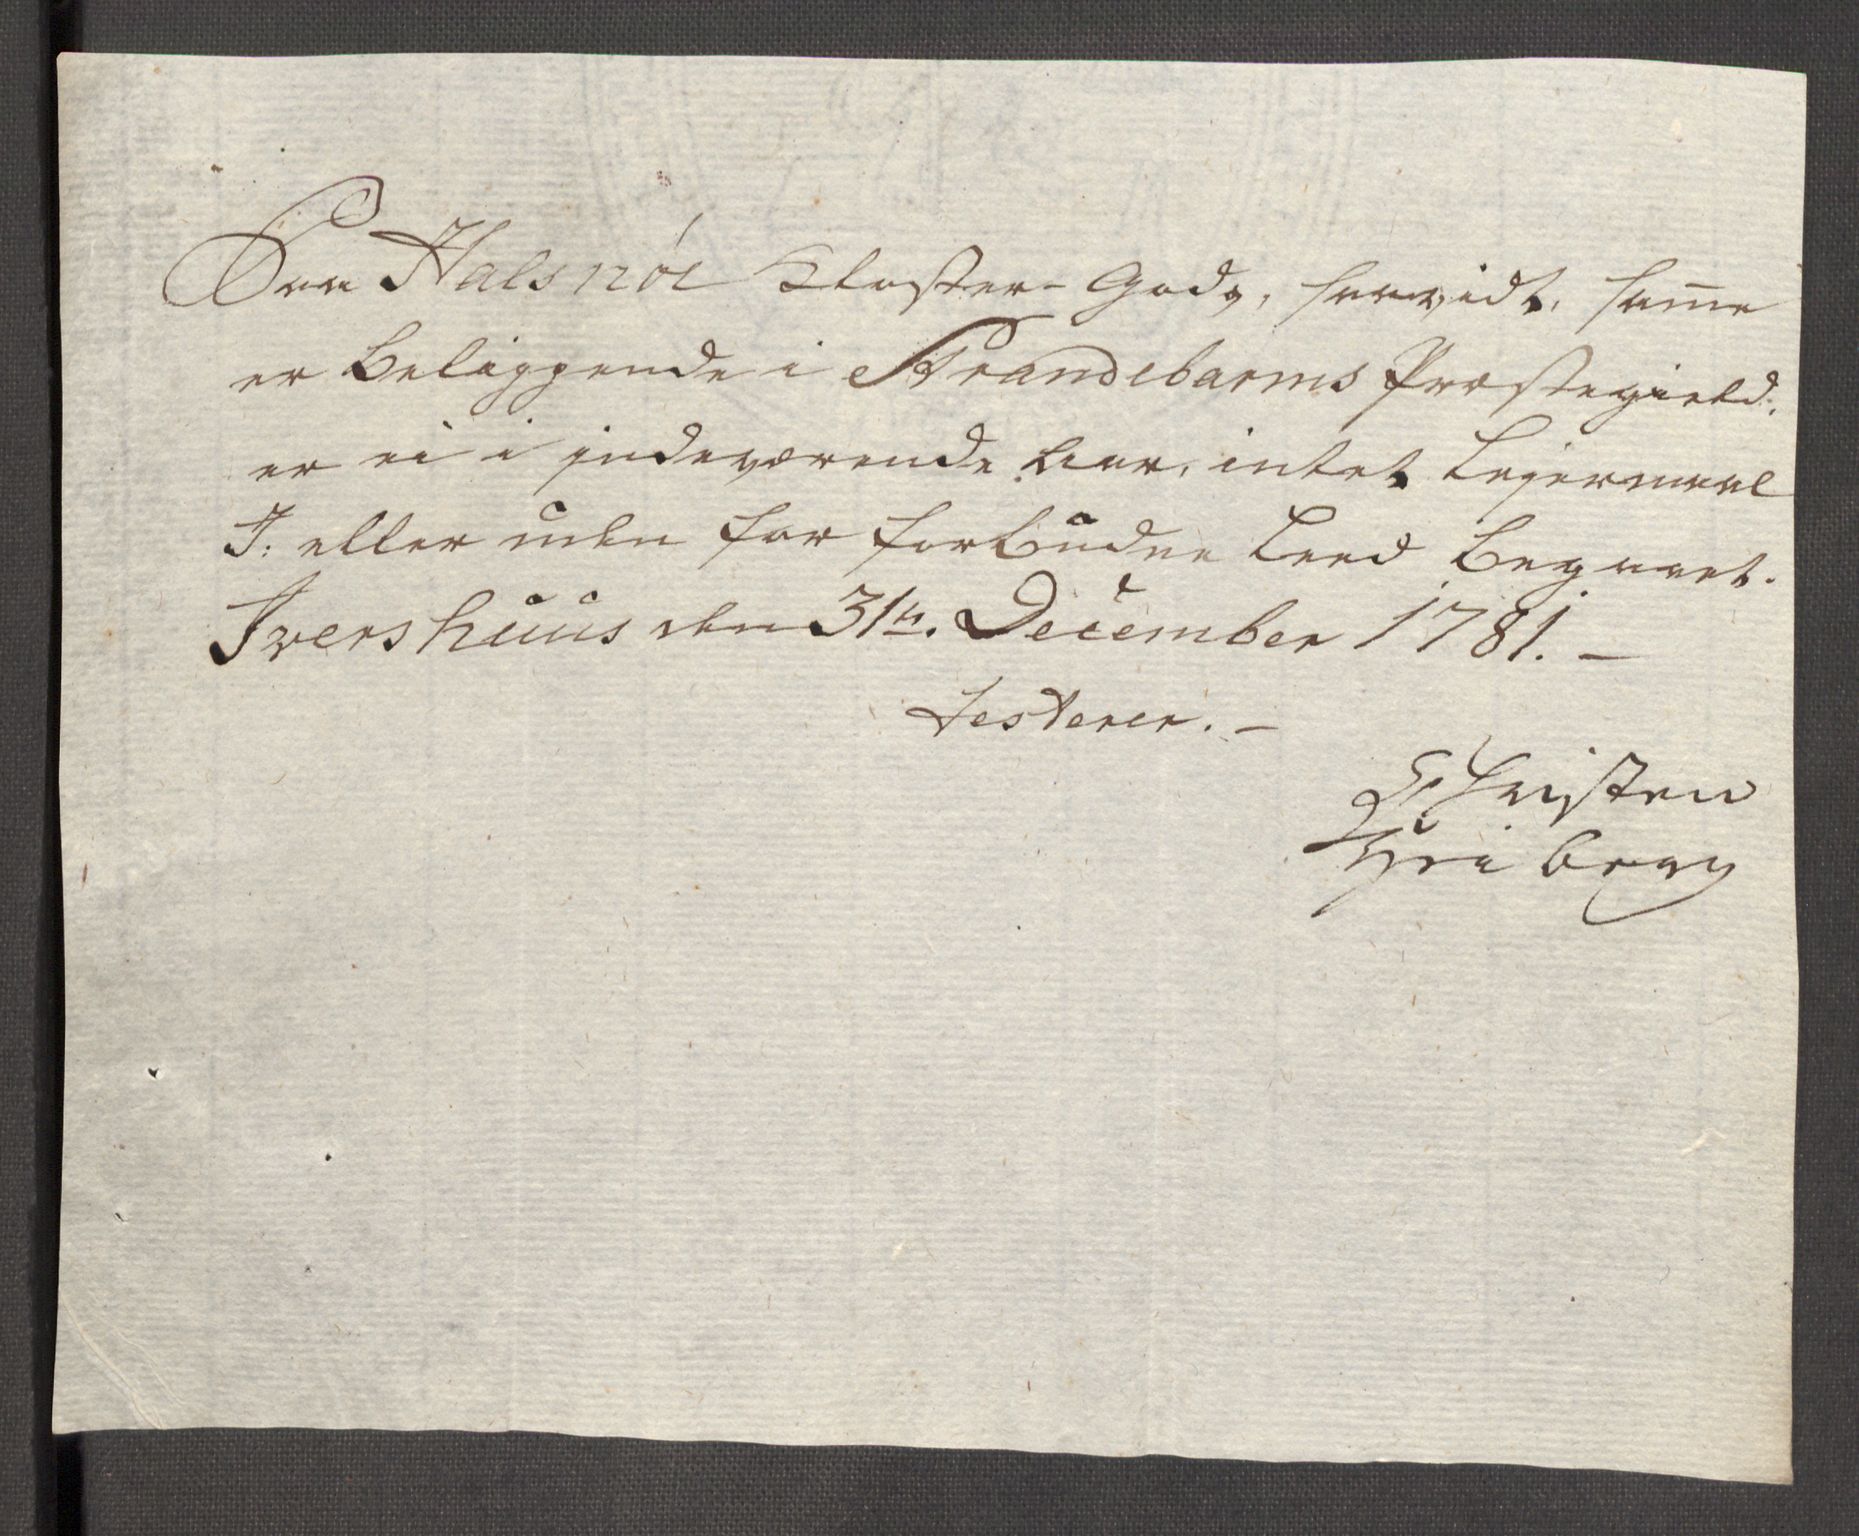 Paa Halsnöe Closter-Gods, saavidt, samme
er beliggende i Strandebarms Præstegield,
er ei i indeværende Aar, intet Lejermaal
I: eller uden for forbudne Leed begaaet.
Ivershuus den 31te. December 1781. –
testerer. –
Christen
Friberg